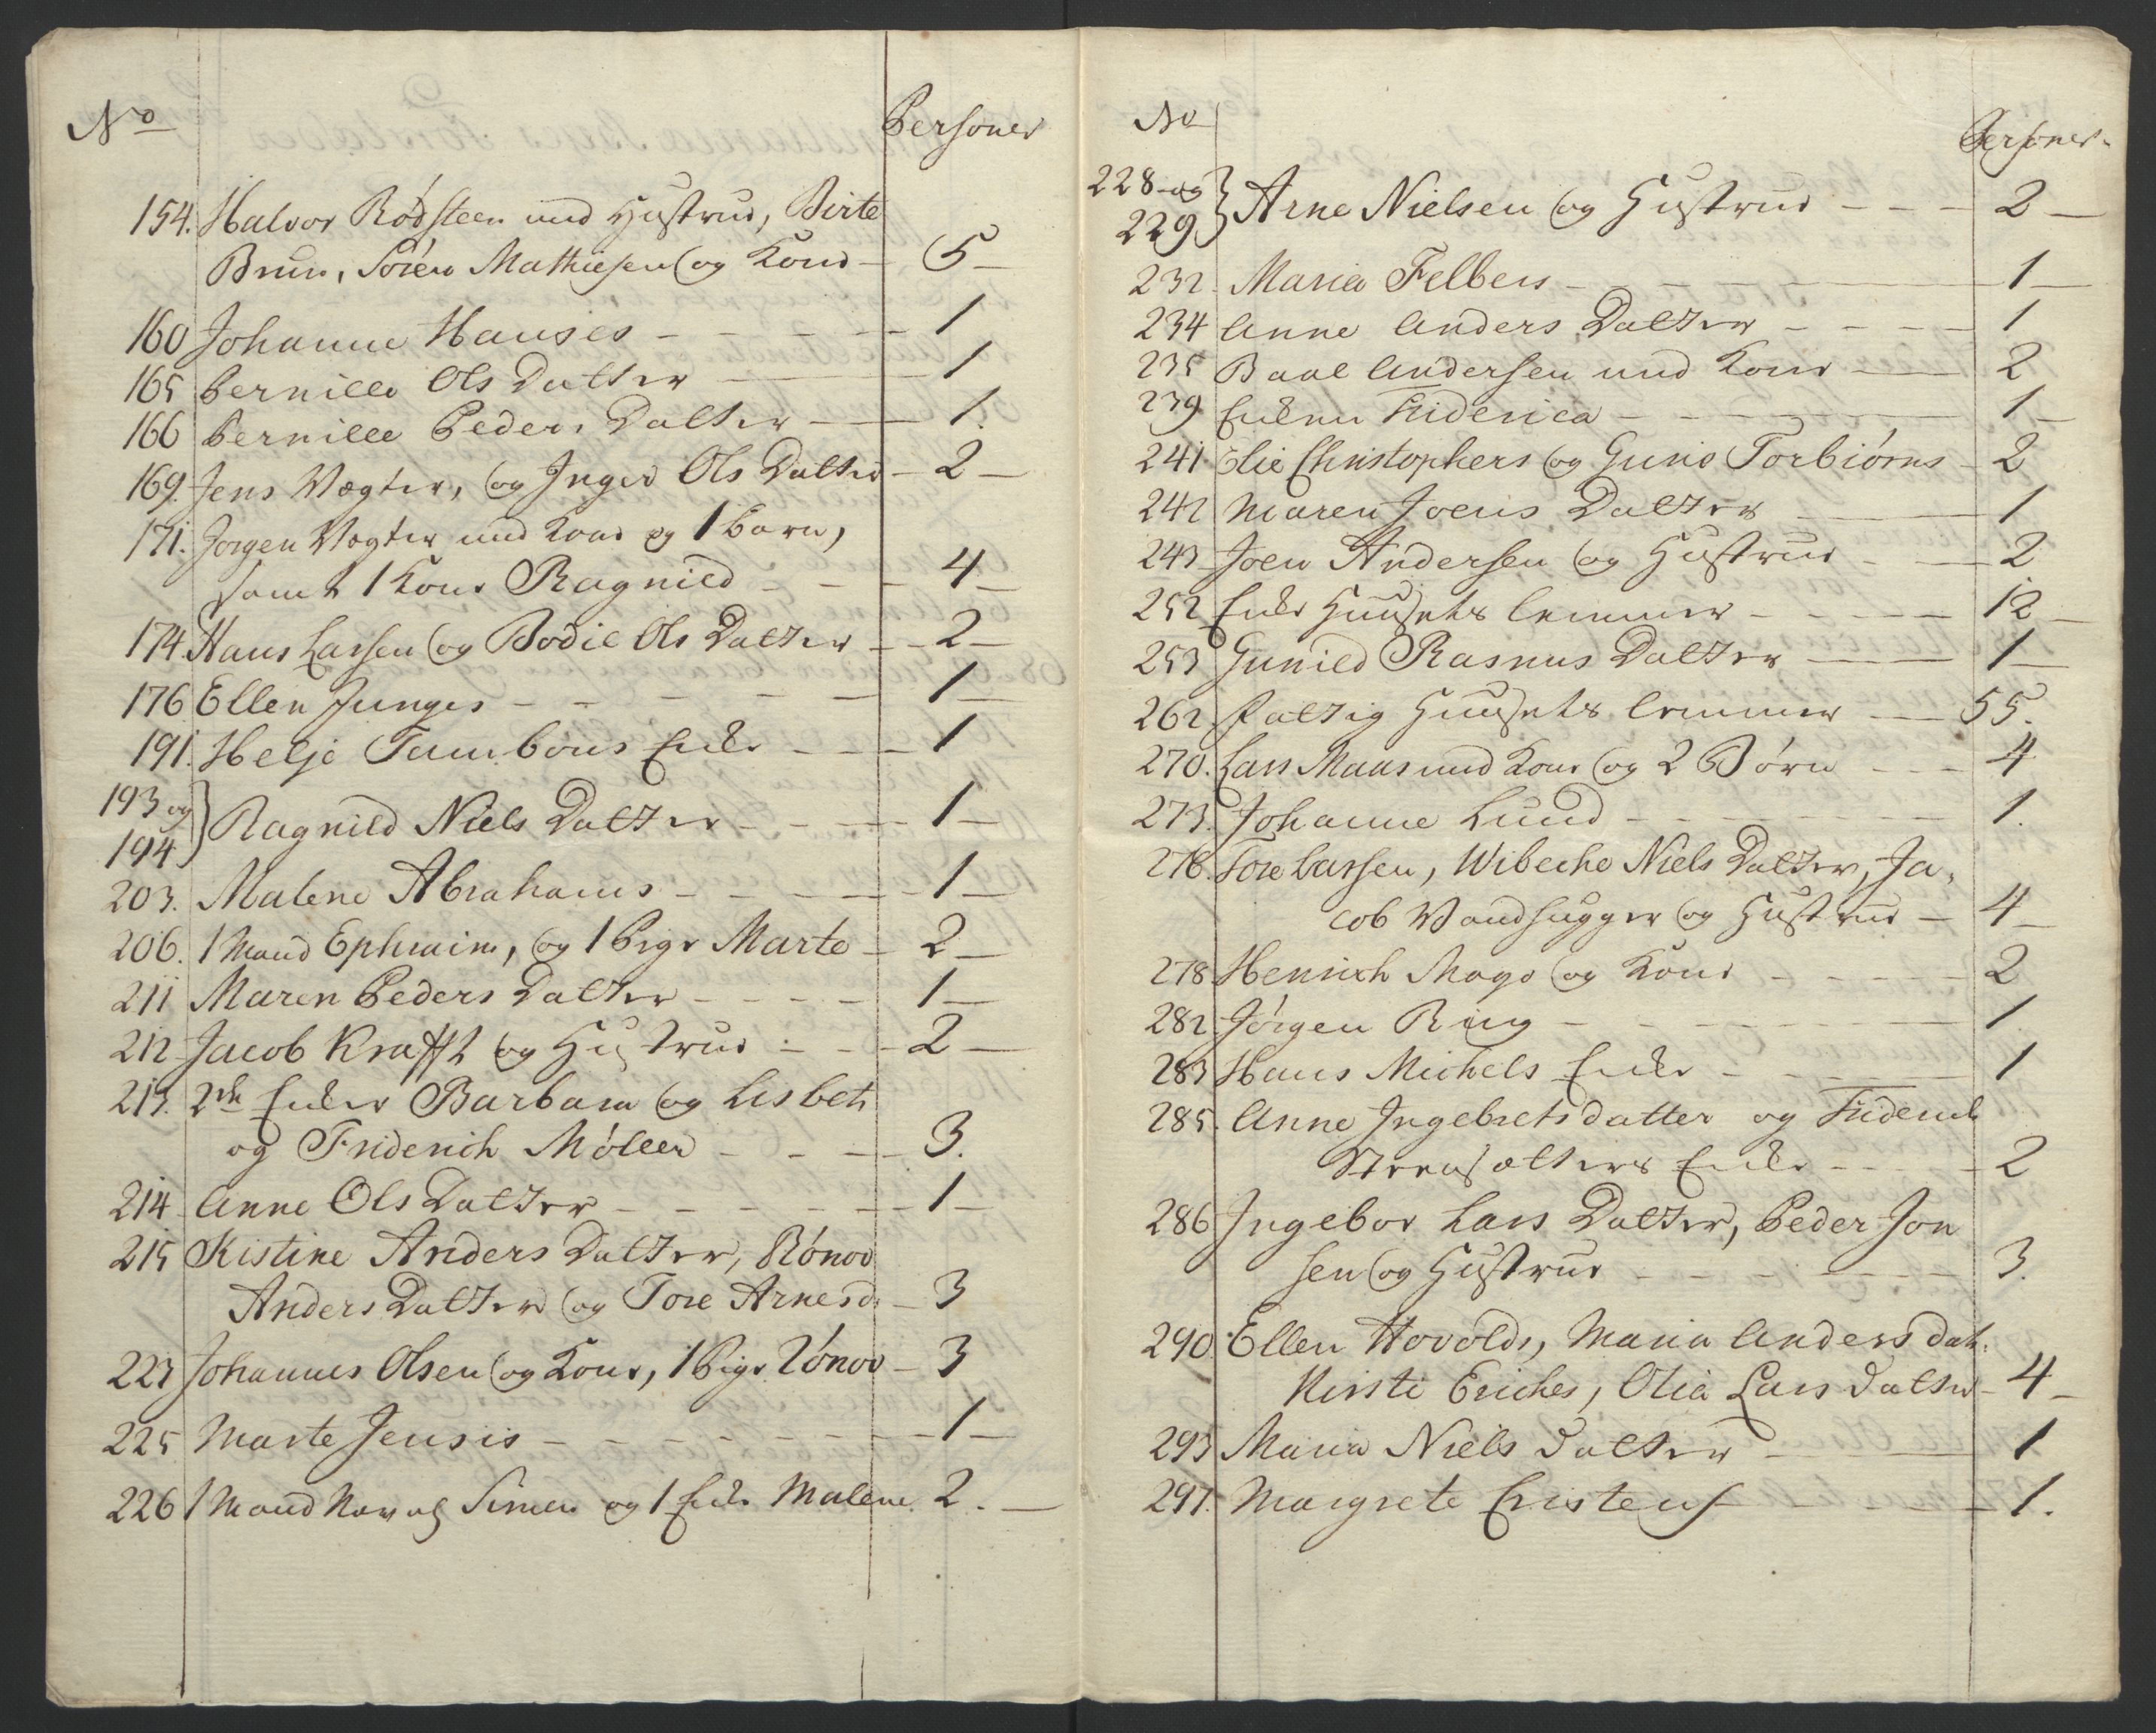 No Personer
154. Halvor Rødsteen med Hustrue, Birte
Brun, Sören Mathiesen og Kone 5
160 Johanne Hanses 1
165 Pernille Ols Datter 1
166 Pernille Peders Datter 1.
169. Jens Vægter, og Inger Ols Datter 2
171. Jørgen Vægter med Kone og 1 Barn,
samt 1 Kone Ragnild 4
174. Hans Larsen og Bodil Ols Datter 2
176 Ellen Junges 1
191. Helje Tambours Enke 1
193 og
194 } Ragnild Niels Datter 1
203. Malene Abrahams 1
206. 1 Mand Ephraim, og 1 Pige Marte 2
211 Maren Peders Datter 1
212 Jacob Krafft og Hustrue 2
213. 2de Enker Barbara og Lisbet
og Friderich Møller 3.
214 Anne Ols Datter 1
215 Kistine Anders Datter, Rønov
Anders Datter og Tore Arnesd. 3
223 Johannes Olsen og Kone, 1 Pige Rønov 3
225 Marte Jensis 1
226 1 Mand Simen og 1 Enke Malene. 2.
No Personer
228 og
229 } Arne Nielsen og Hustrue 2
232. Maria Felbers 1
234 Anne Anders Datter 1
235 Paal Andersen med Kone 2
239 Enken Friderica 1
241. Elie Christophers og Guro Torbiørns 2
242 Maren Joens Datter 1
243 Joen Andersen og Hustrue 2
252 Enke Huusets Lemmer 12
253 Gunild Rasmus Datter 1
262. Fattig Huusets Lemmer 55.
270. Lars Maas med Kone og 2 Børn 4
273. Johanne Lund 1.
276. Tore Larsen, Wibeche Niels Datter, Ja,
cob Vandsugger og Hustrue 4
278 Henrich Mago og Kone 2
282. Jørgen Ring 1
283 Hans Michels Enke 1
285. Anne Ingebrets datter og Friderich
Enke 2
286 Ingebor Lars Datter, Peder Jon
sen og Hustrue 3.
290. Ellen Hovolds, Maria Anders dat.
Kirsti Eriches, Olia Lars datter 4
293 Maria Niels datter 1
297. Margrete Cristens 1.